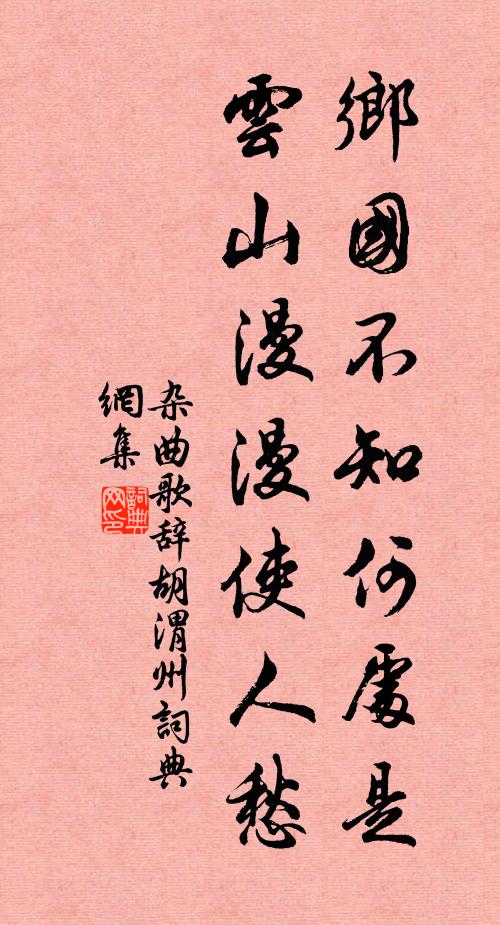 鄉國不知何處是
雲山漫漫使人愁
杂曲歌辞胡渭州詞典
網集
詞典
网印